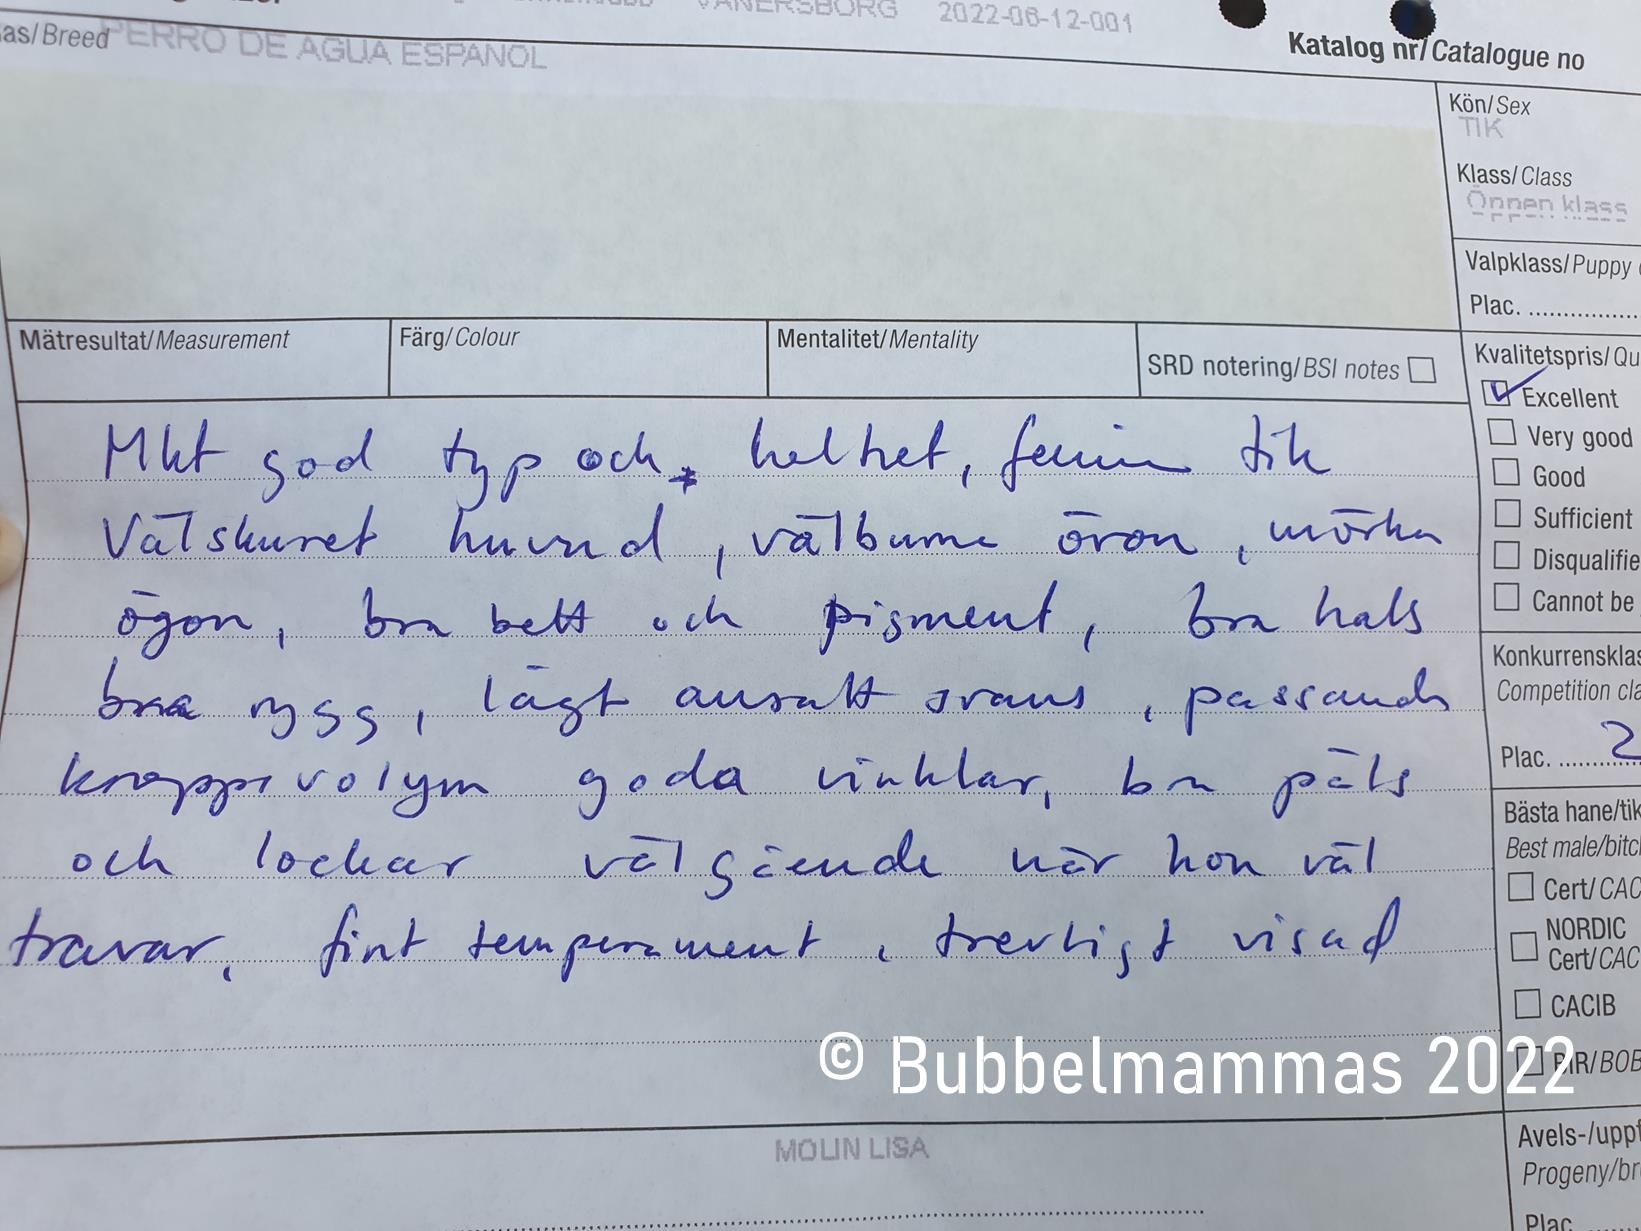 VÄNERSBORG 2022-06-12-001
as/Breed PERRO DE AGUA ESPANOL
Katalog nr/Catalogue no
Kön/Sex
TIK
Klass/Class
Öppen klass
Valpklass/Puppy
Plac.
Mätresultat/Measurement
Färg/Colour
Mentalitet/Mentality
SRD notering/BSI notes
Kvalitetspris/Qu
Excellent
Very good
Good
Sufficient
Disqualifie
Cannot be
Konkurrensklas
Competition cla
Plac. 2
Bästa hane/tik
Best male/bitc
Cert/CAC
NORDIC
Cert/CAC
CACIB
BIR/BOB
Avels-/uppf
Progeny/br
Plac
Mkt god typ och helhet, feminin tik
Välskuret huvud, välburna öron, mörka
ögon, bra bett och pigment, bra hals
bra rygg, lågt ansatt svans, passande
kroppsvolym goda vinklar, bra päls
och lockar välgående när hon väl
travar, fint temperament, trevligt visad
© Bubbelmammas 2022
MOLIN LISA